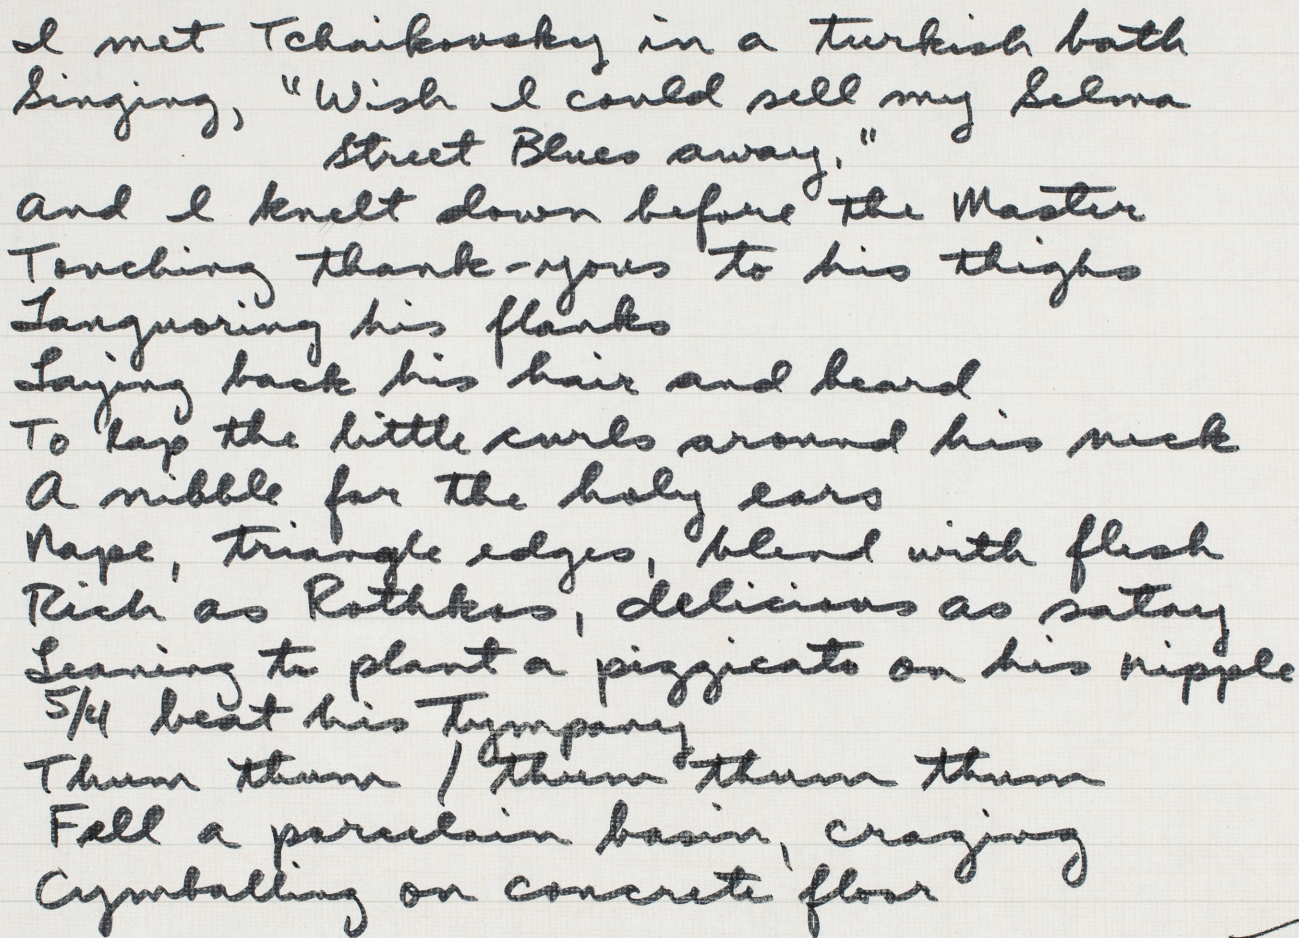 I met Tchaikovsky in a turkish bath
Singing, "Wish I could sell my Selma
Street Blues away."
And I knelt down before the Master
Touching thank-yous to his thighs
Languoring his flanks
Laying back his hair and beard
To lap the little curls around his neck
A nibble for the holy ears
Nape, triangle edges, blend with flesh
Rich as Rothkos, delicious as satay
Leaning to plant a pizzicato on his nipple
5/4 beat his Tympany
Thum thum / thum thum thum
Fell a porcelain basin, crazing
Cymballing on concrete floor